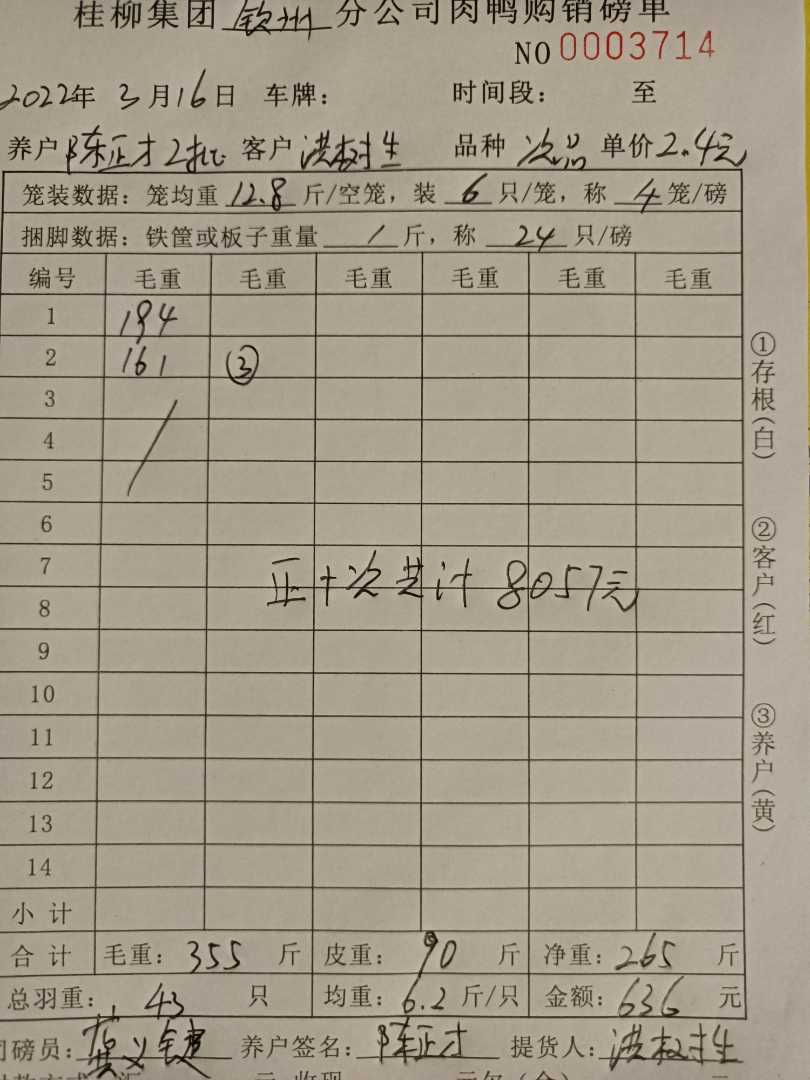 桂柳集团 钦州 分公司肉鸭购销磅单
NO 0003714
2022年 3月16日 车牌： 时间段： 至
养户 陈正才2批 客户 洪树生 品种 次品 单价2.4元
笼装数据：笼均重 12.8 斤/空笼，装 6 只/笼，称 4 笼/磅
捆脚数据：铁筐或板子重量 / 斤，称 24 只/磅
编号 毛重 毛重 毛重 毛重 毛重 毛重
1 194
2 161 ③
3 /
4
5
6
7
正+次共计 8057元
8
9
10
11
12
13
14
小 计
合 计 毛重：355 斤 皮重：90 斤 净重：265 斤
总羽重：43 只 均重：6.2斤/只 金额：636 元
司磅员： 义键 养户签名：陈正才 提货人：洪树生
①存根(白)
②客户(红)
③养户(黄)